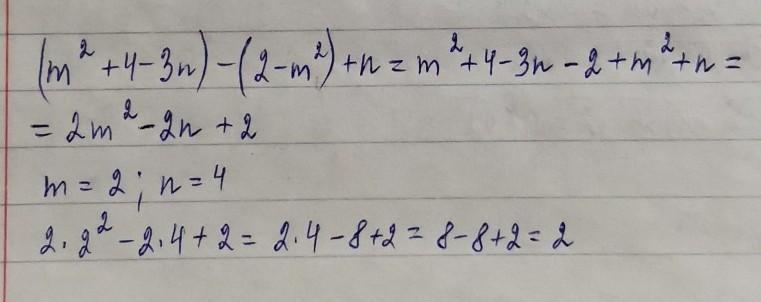 (m² + 4 - 3n) - (2 - m²) + n = m² + 4 - 3n - 2 + m² + n =
= 2m² - 2n + 2
m = 2 ; n = 4
2 · 2² - 2 · 4 + 2 = 2 · 4 - 8 + 2 = 8 - 8 + 2 = 2